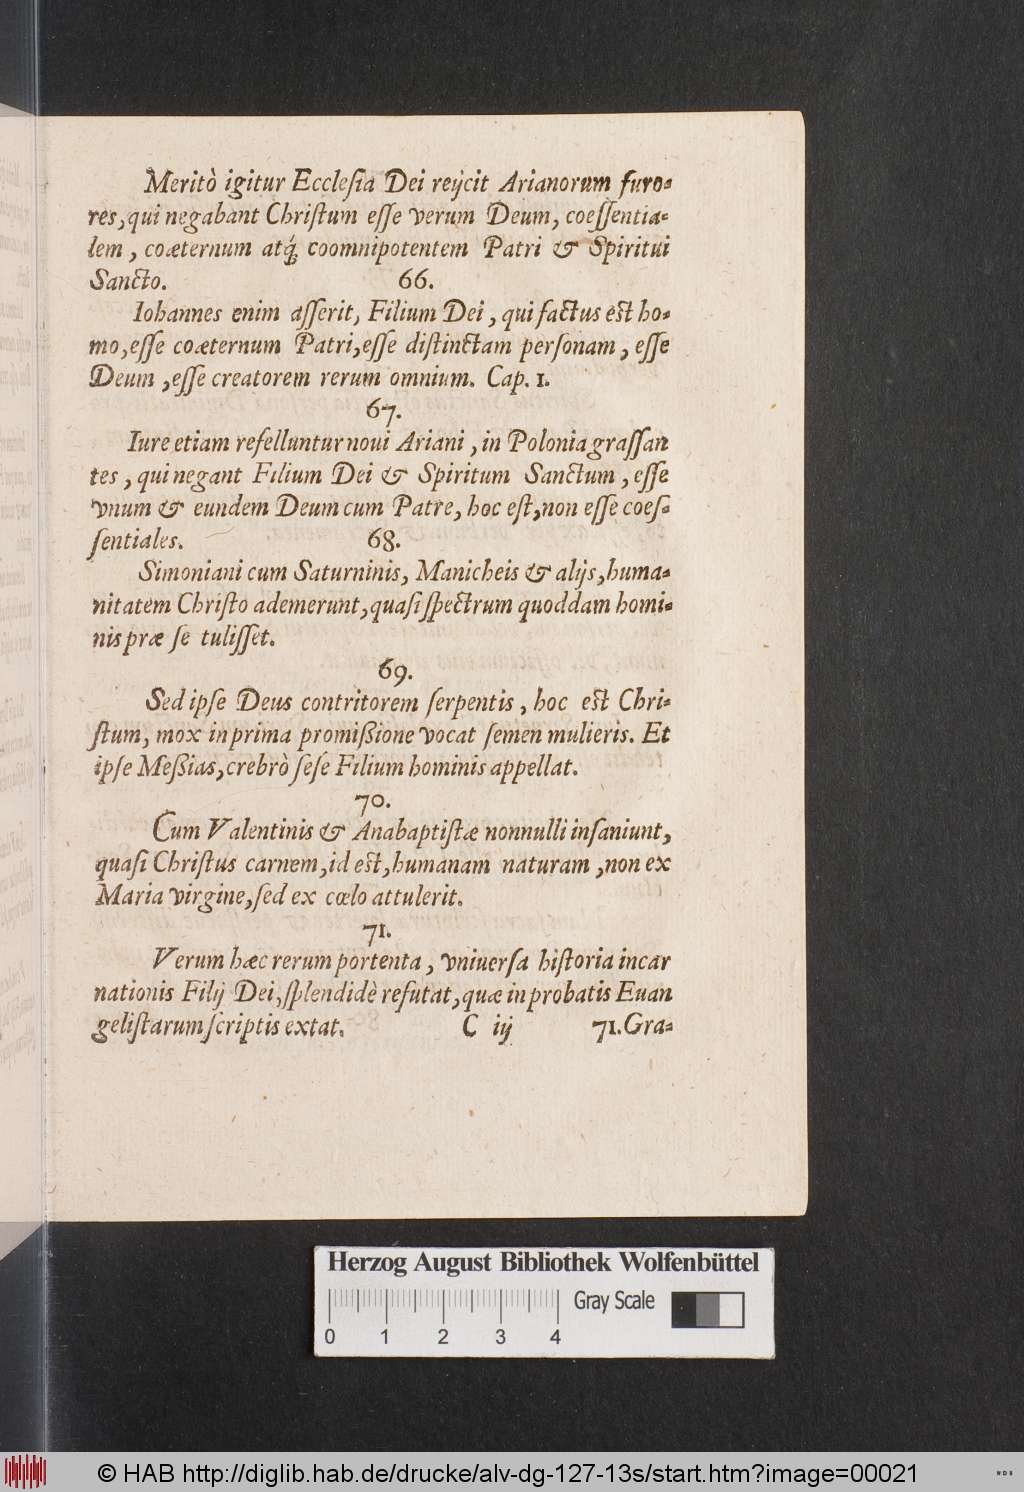 Meritò igitur Ecclesia Dei reijcit Arianorum furo-
res, qui negabant Christum esse verum Deum, coessentia-
lem, coæternum atq́; coomnipotentem Patri & Spiritui
Sancto. 66.
Iohannes enim asserit, Filium Dei, qui factus est ho-
mo, esse coæternum Patri, esse distinctam personam, esse
Deum, esse creatorem rerum omnium. Cap. 1.
67.
Iure etiam refelluntur noui Ariani, in Polonia grassan
tes, qui negant Filium Dei & Spiritum Sanctum, esse
vnum & eundem Deum cum Patre, hoc est, non esse coes-
sentiales. 68.
Simoniani cum Saturninis, Manicheis & alijs, huma-
nitatem Christo ademerunt, quasi spectrum quoddam homi-
nis præ se tulisset.
69.
Sed ipse Deus contritorem serpentis, hoc est Chri-
stum, mox in prima promißione vocat semen mulieris. Et
ipse Meßias, crebrò sese Filium hominis appellat.
70.
Cum Valentinis & Anabaptistæ nonnulli insaniunt,
quasi Christus carnem, id est, humanam naturam, non ex
Maria virgine, sed ex cœlo attulerit.
71.
Verum hæc rerum portenta, vniuersa historia incar
nationis Filij Dei, splendidè refutat, quæ in probatis Euan
gelistarum scriptis extat. C iij 71. Gra-
Herzog August Bibliothek Wolfenbüttel
Gray Scale
0 1 2 3 4
© HAB http://diglib.hab.de/drucke/alv-dg-127-13s/start.htm?image=00021